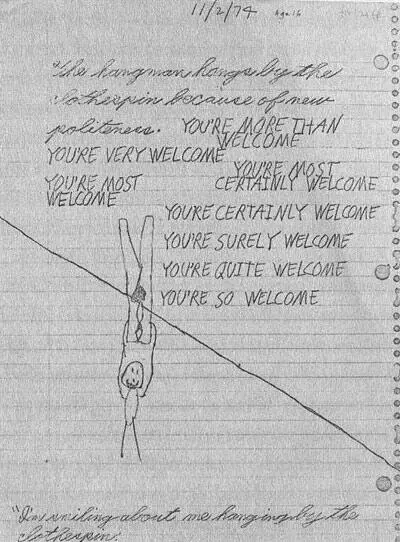 11/2/74 Age 16
"The hangman hangs by the
clothespin because of new
politeness. YOU'RE MORE THAN
WELCOME
YOU'RE VERY WELCOME
YOU'RE MOST
CERTAINLY WELCOME
YOU'RE MOST
WELCOME
YOU'RE CERTAINLY WELCOME
YOU'RE SURELY WELCOME
YOU'RE QUITE WELCOME
YOU'RE SO WELCOME
"I'm smiling about me hanging by the
clothespin.